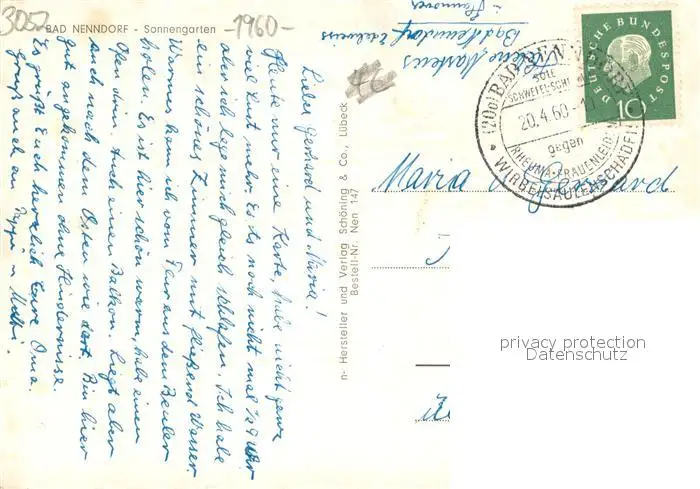 3052
BAD NENNDORF - Sonnengarten
-1960-
Liebe Gerhard und Maria!
Heute nur eine Karte, habe nicht ganz
viel Lust mehr. Es ist noch nicht mal ½ 9 Uhr
also ich leg mich gleich schlafen. Ich habe
ein schönes Zimmer mit fließend Wasser.
Warmes kann ich vom Tar aus dem Beuler
holen. Es ist hier schön warm, habe einen
Ofen drin. Auch einen Balkon. Liegt aber
auch nach dem Osten wie dort. Bin hier
gut angekommen ohne Hindernisse.
Es grüßt Euch herzlich Eure Oma.
Gruß auch an Pappi u Mutti.
n- Hersteller und Verlag Schöning & Co., Lübeck
Bestell-Nr. Nen 147
Martens
Bad Nenndorf
Hannover
DEUTSCHE BUNDESPOST
10
(20a) BAD NENNDORF
SOLE
20.4.60
gegen
RHEUMA-FRAUENLEIDEN
WIRBELSÄULENSCHÄDEN
Maria u Gerhard
privacy protection
Datenschutz